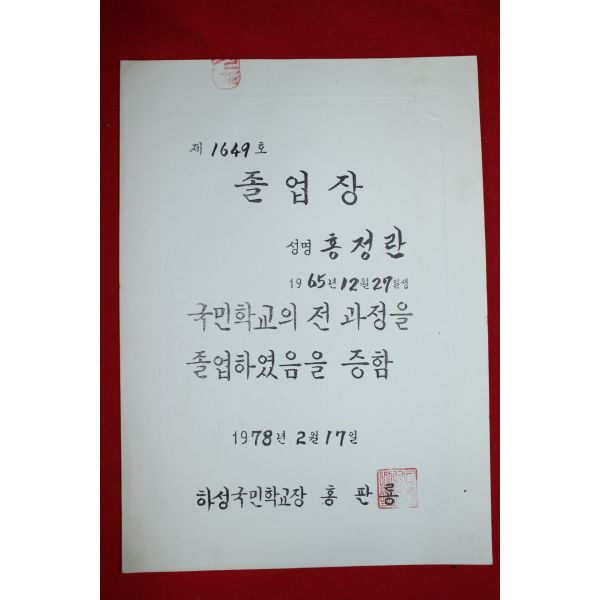 제 1649 호
졸업장
성명 홍정란
1965년 12월 29일생
국민학교의 전 과정을
졸업하였음을 증함
1978년 2월 17일
하성국민학교장 홍 판 룡